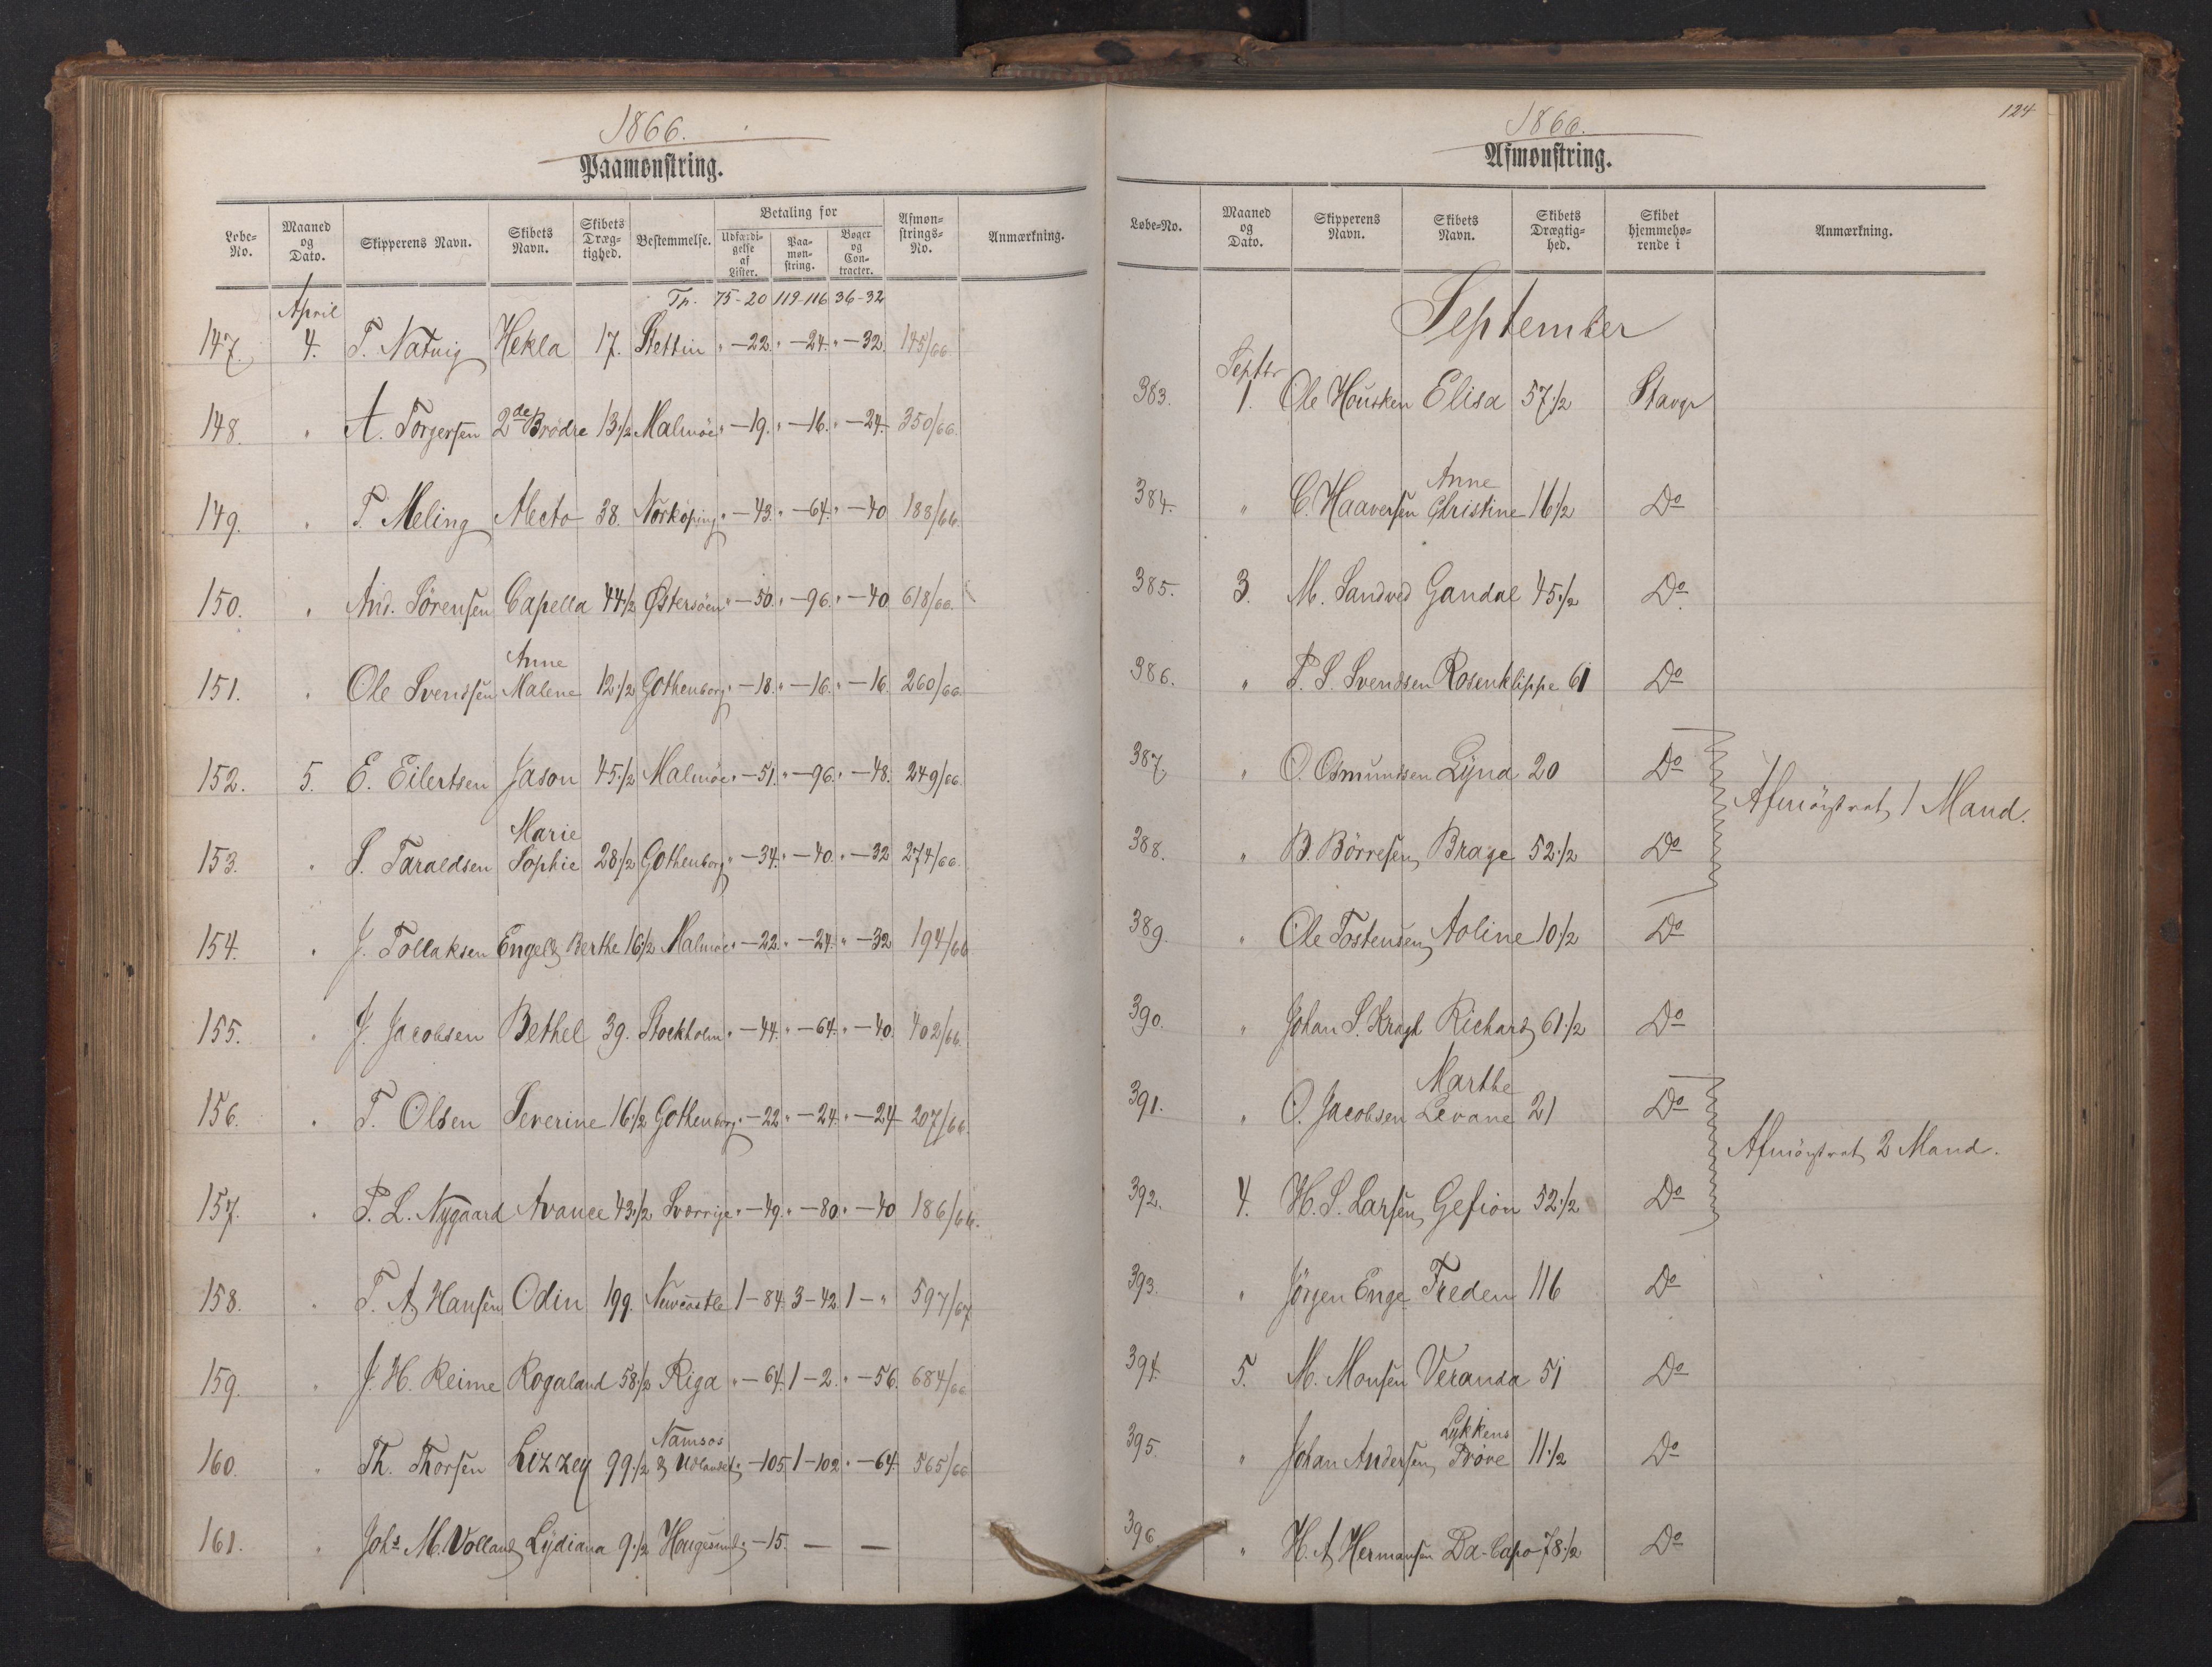 1866.
Paamønstring.
Løbe-No. Maaned og Dato. Skipperens Navn. Skibets Navn. Skibets Drægtighed. Bestemmelse. Betaling for Udfærdigelse af Lister. Paamønstring. Bøger og Contracter. Afmønstrings-No. Anmærkning.
Tp. 75-20 119-116 36-32
April
147. 4. T. Natvig Hekla 17. Stettin " -22. " -24. " -32. 145/66.
148. " A. Torgersen 2de Brødre 13 1/2 Malmöe " -19. " -16. " -24. 350/66.
149. " T. Meling Alecto 38. Norköping " -43. " -64. " -40 188/66.
150. " And. Sörensen Capella 44 1/2 Østersöen " -50. " -96. " -40 618/66.
Anne
151. " Ole Svendsen Malene 12 1/2 Gothenborg " -18. " -16. " -16. 260/66.
152. 5. E. Eilertsen Jason 45 1/2 Malmöe " -51. " -96. " -48. 249/66.
Marie
153. " S. Taraldsen Sophie 28 1/2 Gothenborg " -34. " -40. " -32 274/66.
154. " J. Tollaksen Engel Berthe 16 1/2 Malmöe " -22. " -24. " -32 194/66
155. " J. Jacobsen Bethel 39. Stockholm " -44. " -64. " -40. 402/66.
156. " T. Olsen Severine 16 1/2 Gothenborg " -22. " -24. " -24 207/66.
157. " P. L. Nygaard Avance 43 1/2 Sverrige " -49. " -80. " -40 186/66.
158. " T. A. Hansen Odin 199. Newcastle 1-84. 3-42. 1-" 597/67
159. " J. H. Reime Rogaland 58 1/2 Riga " -64. 1-2. " -56. 684/66
Namsos
160. " Th. Thorsen Lizzey 99 1/2 & Udlandet " -105. 1-102. " -64. 565/66
161. " Johs M. Volland Lydiana 9 1/2 Hougesund " -15. — —
124
1866.
Afmønstring.
Løbe-No. Maaned og Dato. Skipperens Navn. Skibets Navn. Skibets Drægtighed. Skibet hjemmehørende i Anmærkning.
September
Septbr
383. 1. Ole Housken Elisa 57 1/2 Stavgr
Anne
384. " C. Haaversen Christine 16 1/2 Do
385. 3. M. Sandved Gandal 45 1/2 Do
386. " P. S. Svendsen Rosenklippe 61 Do
387. " O. Osmundsen Lÿna 20 Do
Afmönstret 1 Mand.
388. " B. Börresen Brage 52 1/2 Do
389. " Ole Tostensen Aoline 10 1/2 Do
390. " Johan S. Kragh Richard 61 1/2 Do
Marthe
391. " O. Jacobsen Levane 21 Do
Afmönstret 2 Mand.
392. 4. H. S. Larsen Gefion 52 1/2 Do
393. " Jörgen Enge Freden 116 Do
394. 5. M. Monsen Veranda 51 Do
Lykkens
395. " Johan Andersen Pröve 11 1/2 Do
396 " H. A. Hermansen Da-Capo 78 1/2 Do